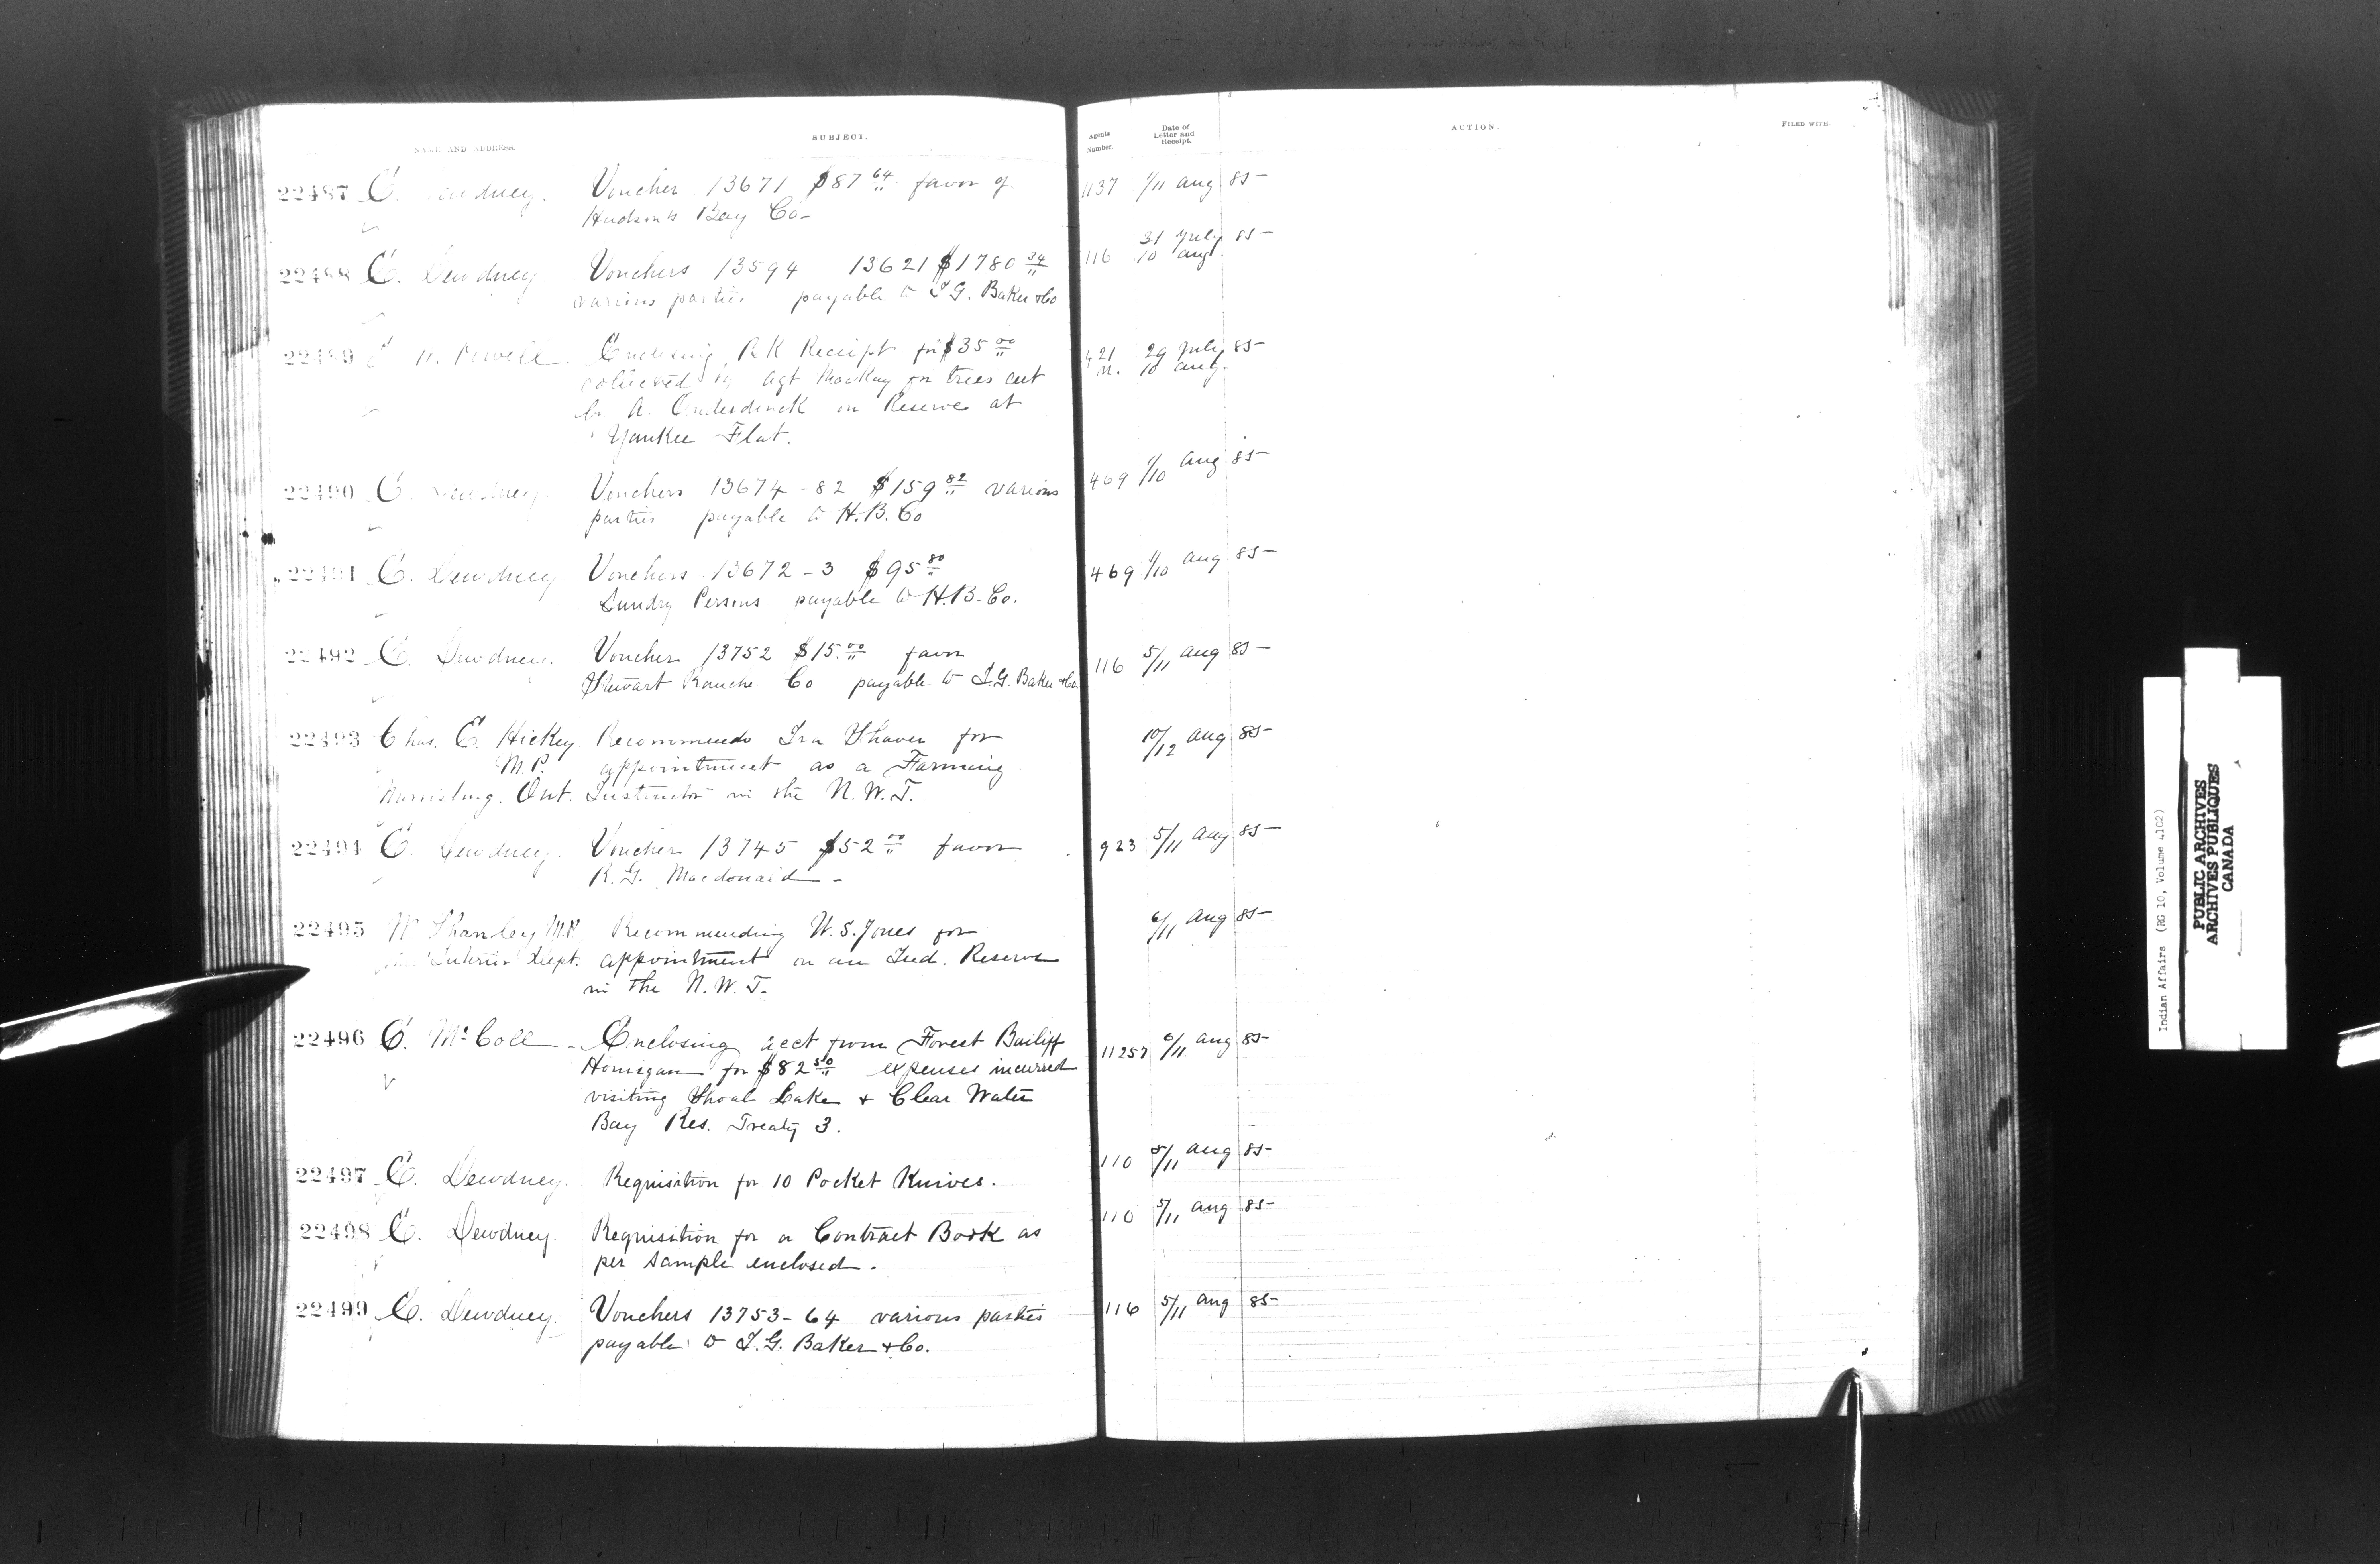 NAME AND ADDRESS.
SUBJECT.
Agents Number.
Date of Letter and Receipt.
ACTION.
FILED WITH.
22487 E. Dewdney. Voucher 13671 $87 64 favor of 1137 1/11 Aug 85
Hudsons Bay Co
22488 E. Dewdney Vouchers 13594 13621 $1780 34 116 31 July 85
various parties payable to I G. Baker & Co 10 Aug
22489 Powell Enclosing Bk Receipt for $35 00 421 29 July 85
collected by Agt MacKay for trees cut 10 Aug.
by A. Onderdonk on Reserve at
Yankee Flat.
22490 E. Dewdney Vouchers 13674 - 82 $159 82 various 469 1/10 Aug 85
parties payable to H.B. Co
22491 E. Dewdney Vouchers 13672 - 3 $95 80 469 1/10 Aug 85
Sundry Persons payable to H.B. Co.
22492 E. Dewdney. Voucher 13752 $15.00 favor 116 5/11 Aug 85
Stewart Ranche Co payable to I.G. Baker & Co.
22493 Chas. E. Hickey Recommends Ira Shaver for 10/12 Aug 85
M.P. appointment as a Farming
Morrisburg. Ont. Instructor in the N.W.T.
22494 E. Dewdney. Voucher 13745 $52 00 favor 923 5/11 Aug 85
R.G. Macdonald
22495 W Shanley M.P. Recommending W.S. Jones for 6/11 Aug 85
Interior Dept. appointment on an Ind. Reserve
in the N.W.T.
22496 E. McColl Enclosing acct from Forest Bailiff 11257 6/11. Aug 85
Honigan for $82 50 expenses incurred
visiting Shoal Lake & Clear Water
Bay Res. Treaty 3.
22497 E. Dewdney. Requisition for 10 Pocket Knives. 110 5/11 Aug 85
22498 E. Dewdney. Requisition for a Contract Book as 110 5/11 Aug 85
per sample enclosed.
22499 E. Dewdney. Vouchers 13753 - 64 various parties 116 5/11 Aug 85
payable to I.G. Baker & Co.
Indian Affairs (RG 10, Volume 4102)
PUBLIC ARCHIVES
ARCHIVES PUBLIQUES
CANADA